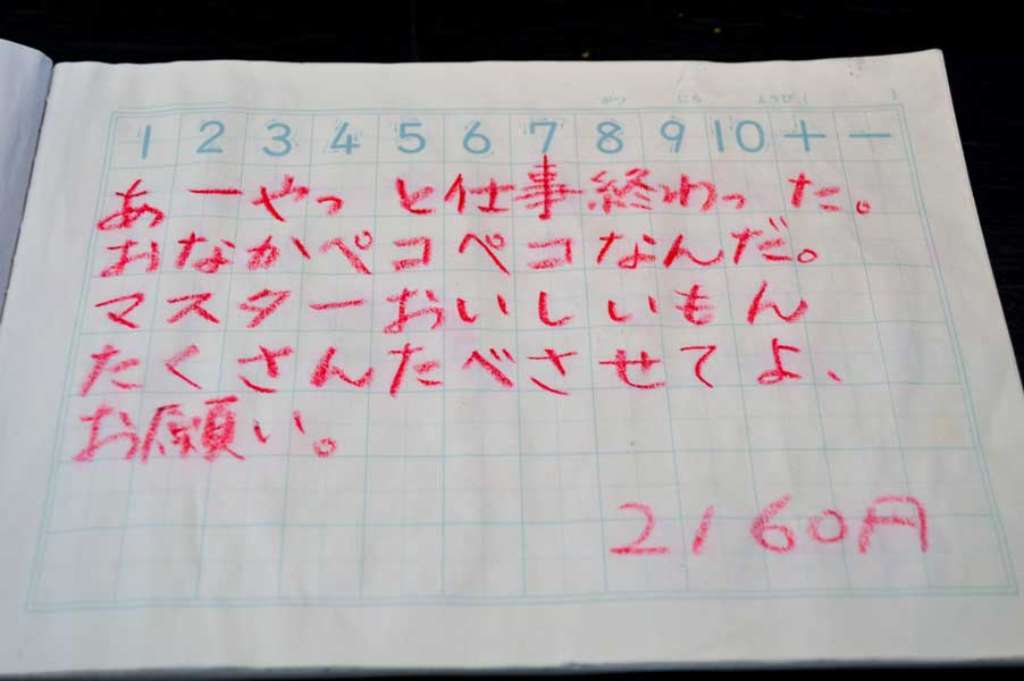 1 2 3 4 5 6 7 8 9 10 + −
あーやっと仕事終わった。
おなかペコペコなんだ。
マスターおいしいもん
たくさんたべさせてよ、
お願い。
2160円